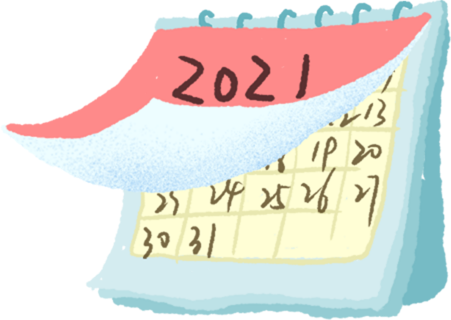 2021
12 13
18 19 20
23 24 25 26 27
30 31